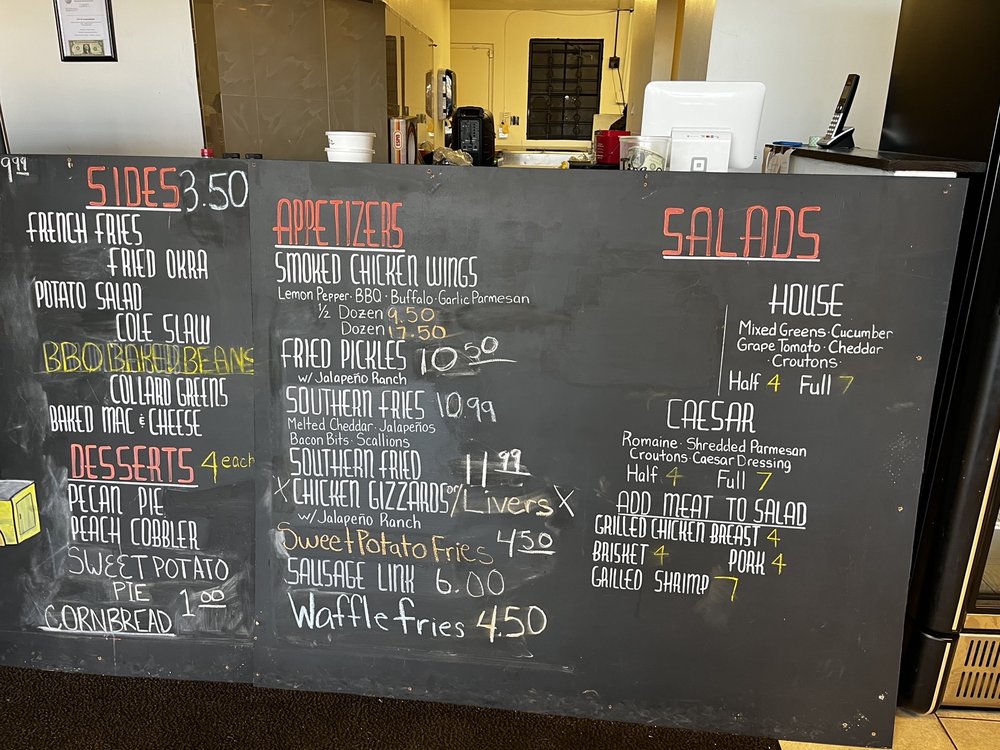 9.99
SIDES 3.50
FRENCH FRIES
FRIED OKRA
POTATO SALAD
COLE SLAW
BBQ BAKED BEANS
COLLARD GREENS
BAKED MAC & CHEESE
DESSERTS 4 each
PECAN PIE
PEACH COBBLER
SWEET POTATO
PIE
CORNBREAD 1.00
APPETIZERS
SMOKED CHICKEN WINGS
Lemon Peper · BBQ · Buffalo · Garlic Parmesan
½ Dozen 9.50
Dozen 17.50
FRIED PICKLES 10.50
w/ Jalapeño Ranch
SOUTHERN FRIES 10.99
Melted Cheddar · Jalapeños
Bacon Bits · Scallions
SOUTHERN FRIED 11.99
X CHICKEN GIZZARDS or/Livers X
w/ Jalapeño Ranch
Sweet Potato Fries 4.50
SAUSAGE LINK 6.00
Waffle fries 4.50
SALADS
HOUSE
Mixed Greens · Cucumber
Grape Tomato · Cheddar
· Croutons
Half 4 Full 7
CAESAR
Romaine · Shredded Parmesan
Croutons · Caesar Dressing
Half 4 Full 7
ADD MEAT TO SALAD
GRILLED CHICKEN BREAST 4
BRISKET 4 PORK 4
GRILLED SHRIMP 7